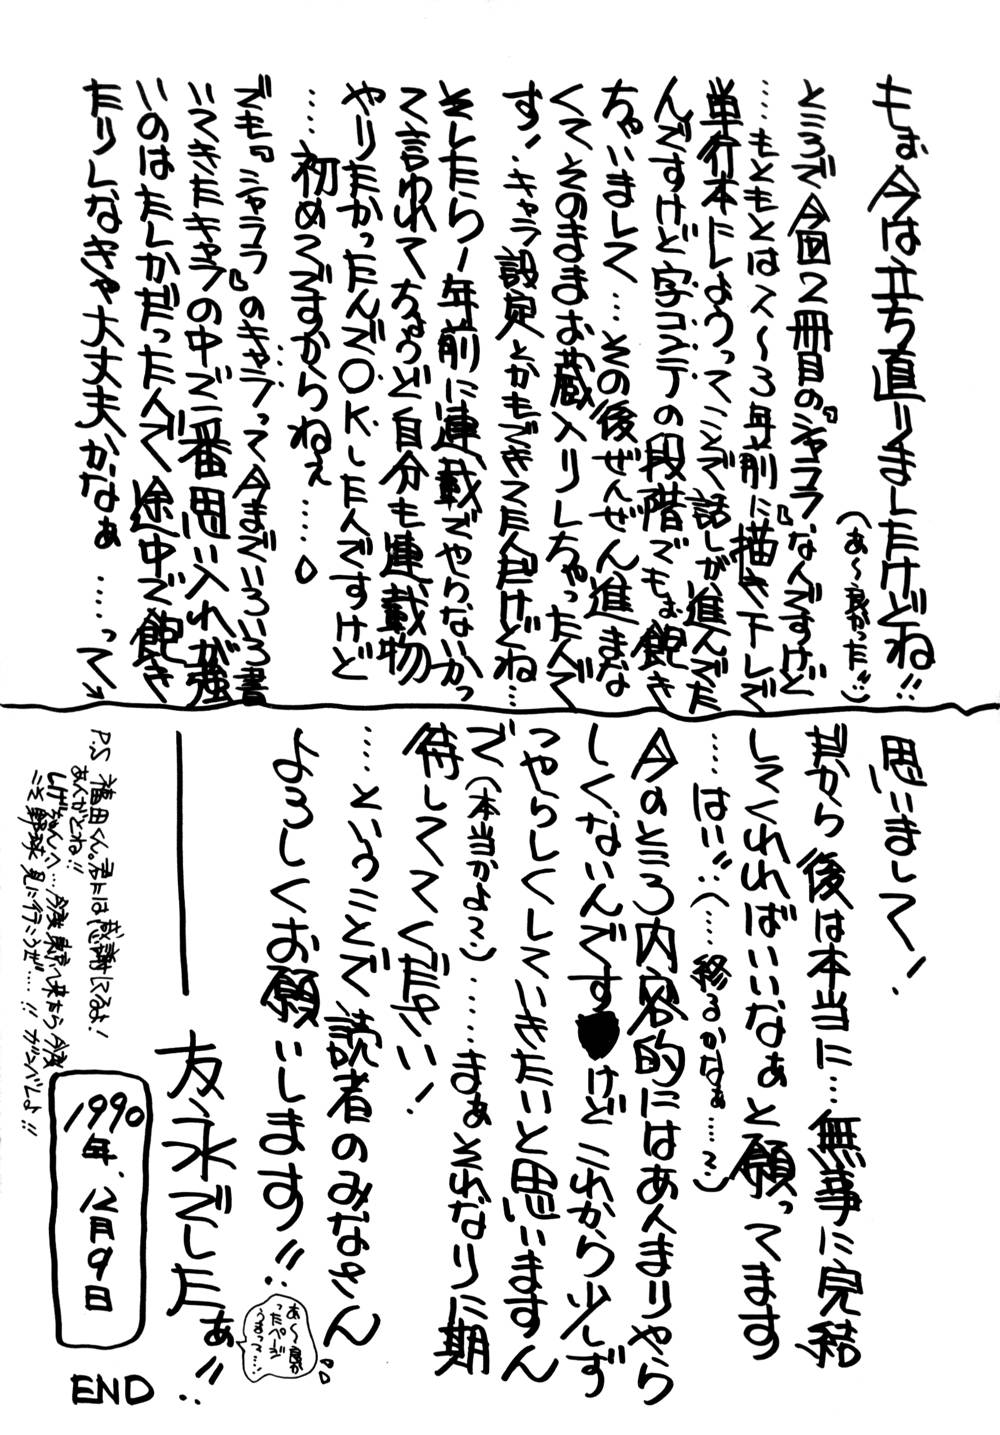 もぉ今は立ち直りましたけどね!!
(あ〜良かった!!)
ところで今回2冊目の『シャラコラ』なんですけど
…もともとは2〜3年前に描き下しで
単行本にしようってことで話しが進んでた
んですけど字コンテの段階でもぉ飽き
ちゃいまして…その後ぜんぜん進まな
くてそのままお蔵入りしちゃったんで
す!キャラ設定とかもできてたんだけどね…
そしたら1年前に連載でやらないかっ
て言われてちょうど自分も連載物
やりたかったんでOKしたんですけど
……初めてですからねぇ……
でも『シャラコラ』のキャラって今までいろいろ書
いてきたキャラの中で一番思い入れが強
いのはたしかだったんで途中で飽き
たりしなきゃ大丈夫かなぁ……って
思いまして!
だから後は本当に…無事に完結
してくれればいいなぁと願ってます
……はい!!(……終るかなぁ……?)
今のところ内容的にはあんまりやら
しくないんです♥けどこれから少しず
つやらしくしていきたいと思いますん
で(本当かよ?)……まぁそれなりに期
待しててください!
……ということで読者のみなさん
よろしくお願いします!!
あ〜良かったページうまって…!
友永でしたぁ!!
P.S 福田くん。君には感謝してるよ!
あんがとね!!
しげちゃんへ…今度東京へ来たら今度
こそ野球見に行こうぜ…!!ガンバしよ!!
1990年、12月9日
END